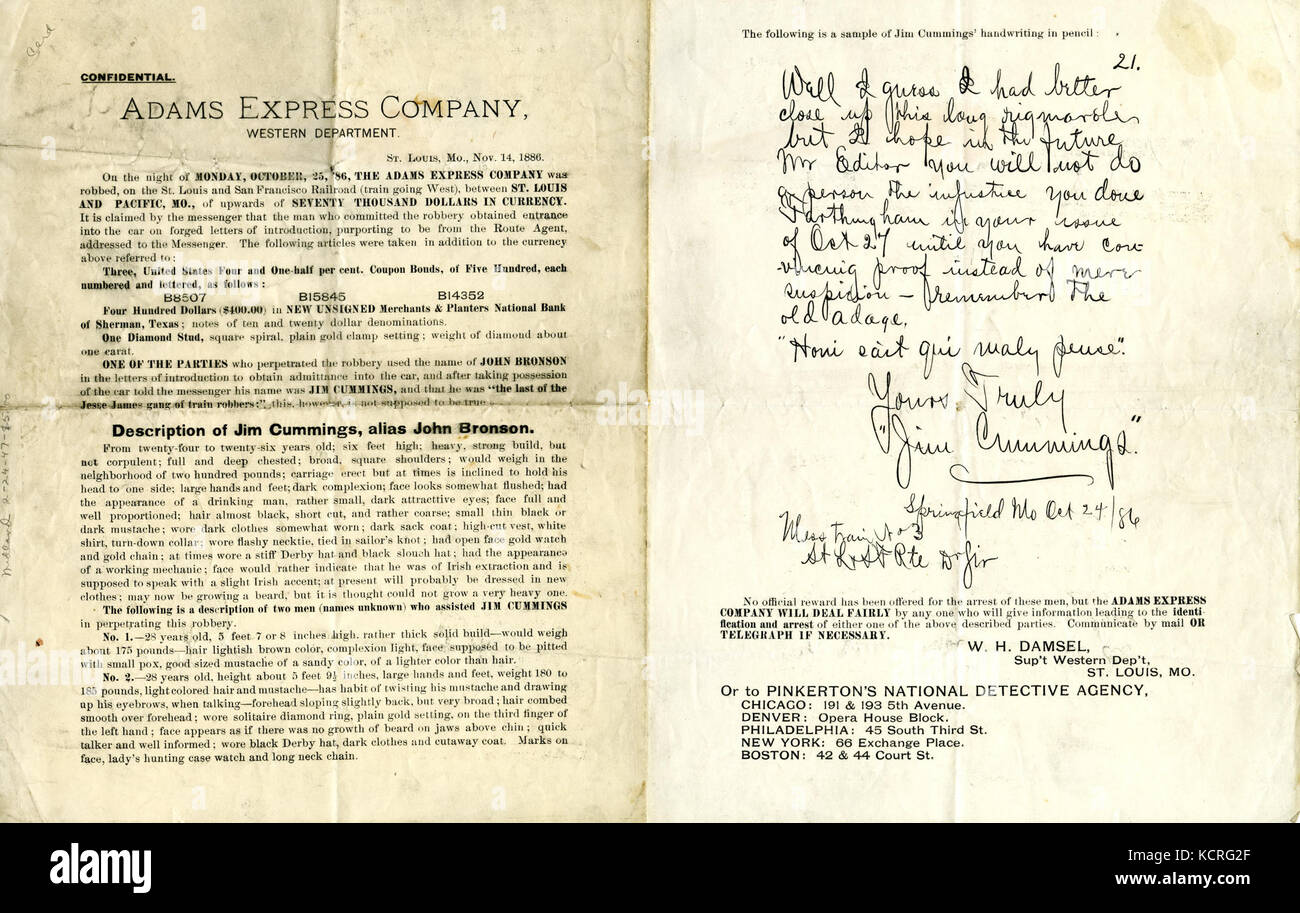 Card
CONFIDENTIAL.
ADAMS EXPRESS COMPANY,
WESTERN DEPARTMENT.
ST. LOUIS, MO., NOV. 14, 1886.
On the night of MONDAY, OCTOBER, 25, '86, THE ADAMS EXPRESS COMPANY was
robbed, on the St. Louis and San Francisco Railroad (train going West), between ST. LOUIS
AND PACIFIC, MO., of upwards of SEVENTY THOUSAND DOLLARS IN CURRENCY.
It is claimed by the messenger that the man who committed the robbery obtained entrance
into the car on forged letters of introduction, purporting to be from the Route Agent,
addressed to the Messenger. The following articles were taken in addition to the currency
above referred to:
Three, United States Four and One-half per cent. Coupon Bonds, of Five Hundred, each
numbered and lettered, as follows:
B8507 B15845 B14352
Four Hundred Dollars ($400.00) in NEW UNSIGNED Merchants & Planters National Bank
of Sherman, Texas; notes of ten and twenty dollar denominations.
One Diamond Stud, square spiral, plain gold clamp setting; weight of diamond about
one carat.
ONE OF THE PARTIES who perpetrated the robbery used the name of JOHN BRONSON
in the letters of introduction to obtain admittance into the car, and after taking possession
of the car told the messenger his name was JIM CUMMINGS, and that he was "the last of the
Jesse James gang of train robbers;" this, however, is not supposed to be true.
Description of Jim Cummings, alias John Bronson.
From twenty-four to twenty-six years old; six feet high; heavy, strong build, but
not corpulent; full and deep chested; broad, square shoulders; would weigh in the
neighborhood of two hundred pounds; carriage erect but at times is inclined to hold his
head to one side; large hands and feet; dark complexion; face looks somewhat flushed; had
the appearance of a drinking man, rather small, dark attracttive eyes; face full and
well proportioned; hair almost black, short cut, and rather coarse; small thin black or
dark mustache; wore dark clothes somewhat worn; dark sack coat; high-cut vest, white
shirt, turn-down collar; wore flashy necktie, tied in sailor's knot; had open face gold watch
and gold chain; at times wore a stiff Derby hat and black slouch hat; had the appearance
of a working mechanic; face would rather indicate that he was of Irish extraction and is
supposed to speak with a slight Irish accent; at present will probably be dressed in new
clothes; may now be growing a beard, but it is thought could not grow a very heavy one.
The following is a description of two men (names unknown) who assisted JIM CUMMINGS
in perpetrating this robbery.
No. 1.—28 years old, 5 feet 7 or 8 inches high, rather thick solid build—would weigh
about 175 pounds—hair lightish brown color, complexion light, face supposed to be pitted
with small pox, good sized mustache of a sandy color, of a lighter color than hair.
No. 2.—28 years old, height about 5 feet 9½ inches, large hands and feet, weight 180 to
185 pounds, light colored hair and mustache—has habit of twisting his mustache and drawing
up his eyebrows, when talking—forehead sloping slightly back, but very broad; hair combed
smooth over forehead; wore solitaire diamond ring, plain gold setting, on the third finger of
the left hand; face appears as if there was no growth of beard on jaws above chin; quick
talker and well informed; wore black Derby hat, dark clothes and cutaway coat. Marks on
face, lady's hunting case watch and long neck chain.
The following is a sample of Jim Cummings' handwriting in pencil:
21.
Well I guess I had better
close up this long rigmarole,
but I hope in the future
Mr Editor you will not do
a person the injustice you done
Farthingham in your issue
of Oct 27 until you have con-
-vincing proof instead of mere
suspicion — remember the
old adage,
"Honi sait qui maly pense".
Yours Truly
"Jim Cummings."
Springfield Mo Oct 24/86
Mess train No 3
St L & SF Rte
No official reward has been offered for the arrest of these men, but the ADAMS EXPRESS
COMPANY WILL DEAL FAIRLY by any one who will give information leading to the identi-
fication and arrest of either one of the above described parties. Communicate by mail OR
TELEGRAPH IF NECESSARY.
W. H. DAMSEL,
Sup't Western Dep't,
ST. LOUIS, MO.
Or to PINKERTON'S NATIONAL DETECTIVE AGENCY,
CHICAGO: 191 & 193 5th Avenue.
DENVER: Opera House Block.
PHILADELPHIA: 45 South Third St.
NEW YORK: 66 Exchange Place.
BOSTON: 42 & 44 Court St.
alamy
alamy
Image ID: KCRG2F
www.alamy.com